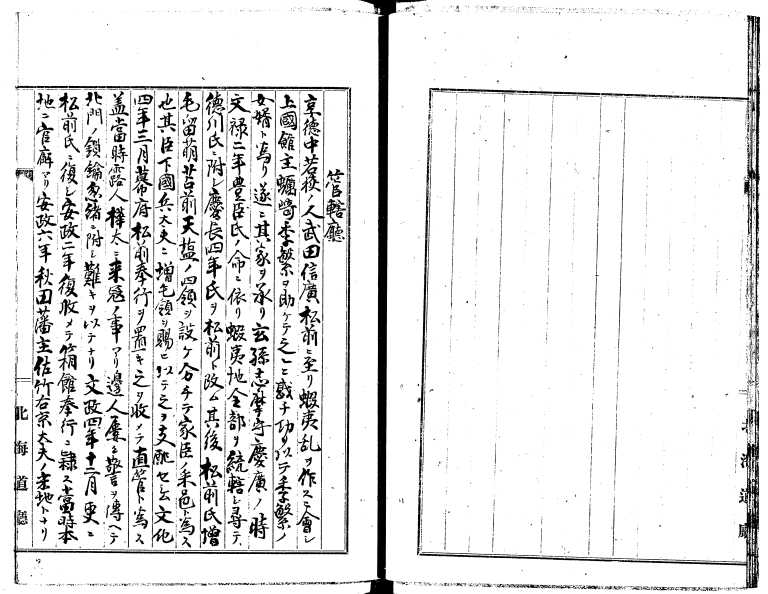 管轄廳
享德中若狹ノ人武田信廣松前ニ至リ蝦夷乱ヲ作スニ會シ
上國館主蠣崎季繁ヲ助ケテ之ト戰チ功ヲ以テ季繁ノ
女婿ト為リ遂ニ其家ヲ承リ玄孫志摩守慶廣ノ時
文禄二年豊臣氏ノ命ニ依リ蝦夷地全部ヲ統轄シ尋テ
德川氏ニ附シ慶長四年氏ヲ松前ト改ム其後松前氏增
毛留萌苫前天塩ノ四領ヲ設ケ分チテ家臣ノ采邑ト為ス
也其臣下國兵太夫ニ增毛領ヲ賜ヒ以テ之ヲ支配セシム文化
四年三月幕府松前奉行ヲ置キ之ヲ收メテ直管ト為ス
蓋當時露人樺太ニ来寇ノ事アリ邊人屢々警ヲ傳ヘテ
北門ノ鎖鑰家緒ニ附シ難キヲ以テナリ文政四年十二月更ニ
松前氏ニ復シ安政二年復收メテ箱館奉行ニ隷ス當時本
地ニ官廨アリ安政六年秋田藩主佐竹右京太夫ノ采地トナリ
北海道廳
北海道廳